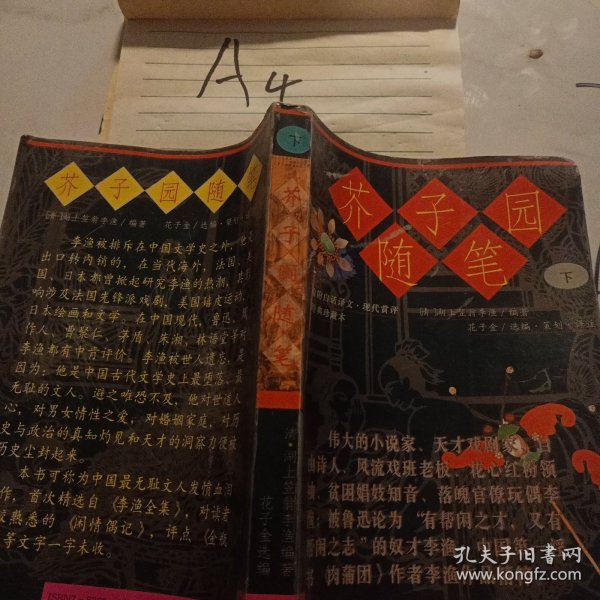 A4
芥子园随
[清]湖上笠翁李渔/编著 花子金/选编·
李渔被排斥在中国文学史之外,他
出口转内销的,在当代海外,法国、
国、日本都曾掀起研究李渔的热潮,其
响涉及法国先锋派戏剧、美国嬉皮运动,
日本绘画和文学。在中国现代,鲁迅、周
作人、曹聚仁、茅盾、朱湘、林语堂等对
李渔都有中肯评价。李渔被世人遗忘,是
因为:他是中国古代文学史上最堕落、最
无耻的文人。避之唯恐不及,他对世道人
心,对男女情性之爱,对婚姻家庭,对历
史与政治的真知灼见和天才的洞察力便被
历史尘封起来。
本书可称为中国最无耻文人发情血泪
作,首次精选自《李渔全集》,对读者
较熟悉的《闲情偶记》,评点《金瓶
等文字一字未收。
ISBN7
下
芥子园随笔
清·湖上笠翁李渔编著
花子金选编
芥子园
随笔
下
白话译文·现代赏评
珍藏本
[清]湖上笠翁李渔/编著
花子金/选编·
伟大的小说家、天才戏剧家、自
由诗人、风流戏班老板、花心红粉领
袖、贫困娼妓知音、落魄官僚玩偶李
渔;被鲁迅论为“有帮闲之才,又有
帮闲之志”的奴才李渔;中国第一
书《肉蒲团》作者李渔
孔夫子旧书网
www.kongfz.com